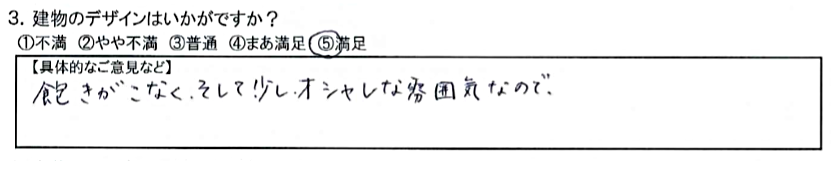 3. 建物のデザインはいかがですか?
①不満 ②やや不満 ③普通 ④まあ満足 ⑤満足
【具体的なご意見など】
飽きがこなく、そして少し、オシャレな雰囲気なので、